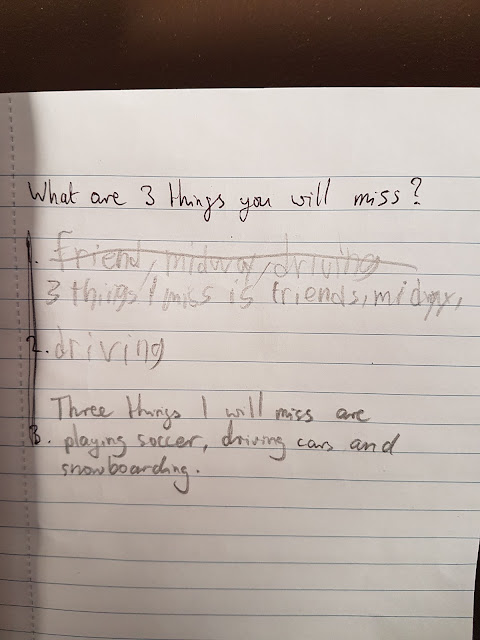 What are 3 things you will miss?
1. Friend, midway, driving
3 things I miss is friends, midway,
2. driving
Three things I will miss are
3. playing soccer, driving cars and
snowboarding.